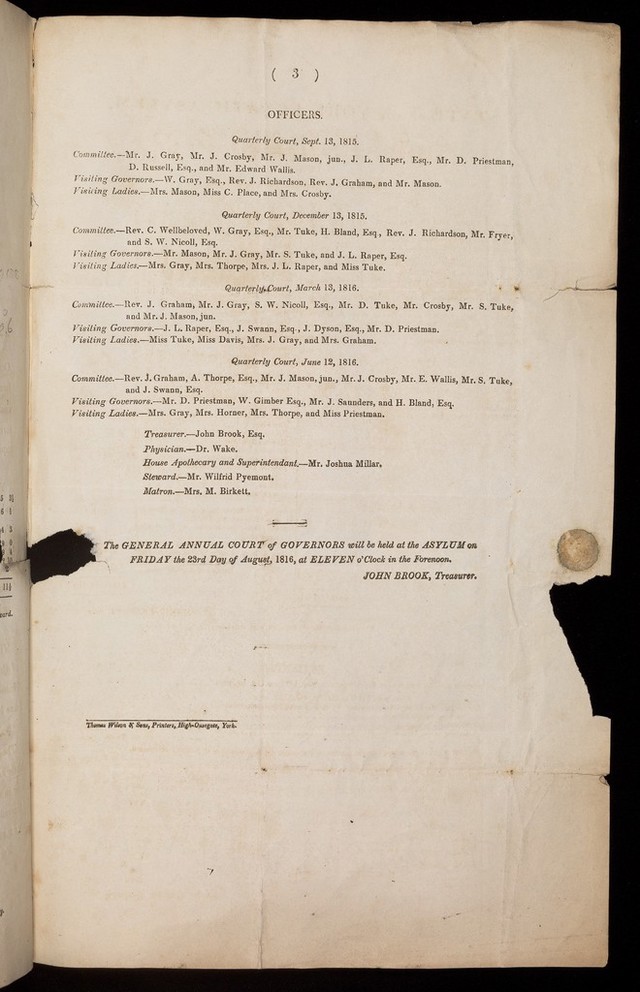 ( 3 )
OFFICERS.
Quarterly Court, Sept. 13, 1815.
Committee.—Mr. J. Gray, Mr. J. Crosby, Mr. J. Mason, jun., J. L. Raper, Esq., Mr. D. Priestman,
D. Russell, Esq., and Mr. Edward Wallis.
Visiting Governors.—W. Gray, Esq., Rev. J. Richardson, Rev. J. Graham, and Mr. Mason.
Visiting Ladies.—Mrs. Mason, Miss C. Place, and Mrs. Crosby.
Quarterly Court, December 13, 1815.
Committee.—Rev. C. Wellbeloved, W. Gray, Esq., Mr. Tuke, H. Bland, Esq, Rev. J. Richardson, Mr. Fryer,
and S. W. Nicoll, Esq.
Visiting Governors.—Mr. Mason, Mr. J. Gray, Mr. S. Tuke, and J. L. Raper, Esq.
Visiting Ladies.—Mrs. Gray, Mrs. Thorpe, Mrs. J. L. Raper, and Miss Tuke.
Quarterly Court, March 13, 1816.
Committee.—Rev. J. Graham, Mr. J. Gray, S. W. Nicoll, Esq., Mr. D. Tuke, Mr. Crosby, Mr. S. Tuke,
and Mr. J. Mason, jun.
Visiting Governors.—J. L. Raper, Esq., J. Swann, Esq., J. Dyson, Esq., Mr. D. Priestman.
Visiting Ladies.—Miss Tuke, Miss Davis, Mrs. J. Gray, and Mrs. Graham.
Quarterly Court, June 12, 1816.
Committee.—Rev. J. Graham, A. Thorpe, Esq., Mr. J. Mason, jun., Mr. J. Crosby, Mr. E. Wallis, Mr. S. Tuke,
and J. Swann, Esq.
Visiting Governors.—Mr. D. Priestman, W. Gimber Esq., Mr. J. Saunders, and H. Bland, Esq.
Visiting Ladies.—Mrs. Gray, Mrs. Horner, Mrs. Thorpe, and Miss Priestman.
Treasurer.—John Brook, Esq.
Physician.—Dr. Wake.
House Apothecary and Superintendant.—Mr. Joshua Millar.
Steward.—Mr. Wilfrid Pyemont.
Matron.—Mrs. M. Birkett.
The GENERAL ANNUAL COURT of GOVERNORS will be held at the ASYLUM on
FRIDAY the 23rd Day of August, 1816, at ELEVEN o'Clock in the Forenoon.
JOHN BROOK, Treasurer.
Thomas Wilson & Sons, Printers, High-Ousegate, York.